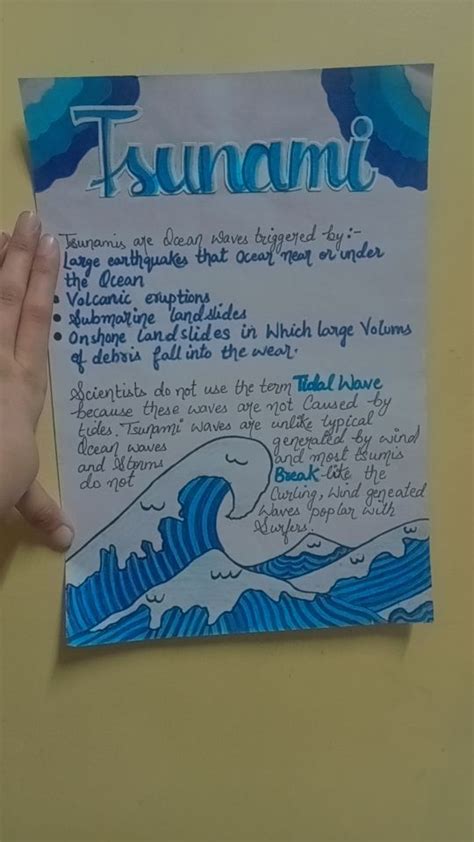 Tsunami
Tsunamis are Ocean waves triggered by:-
Large earthquakes that ocear near or under
the Ocean
• Volcanic eruptions
• Submarine landslides
• Onshone landslides in Which large Volums
of debris fall into the wear.
Scientists do not use the term Tidal Wave
because these waves are not Caused by
tides. Tsunami waves are unlike typical
Ocean waves generated by wind
and Storms and most tsumis
do not Break like the
Curling, Wind geneated
Waves poplar with
Surfers.